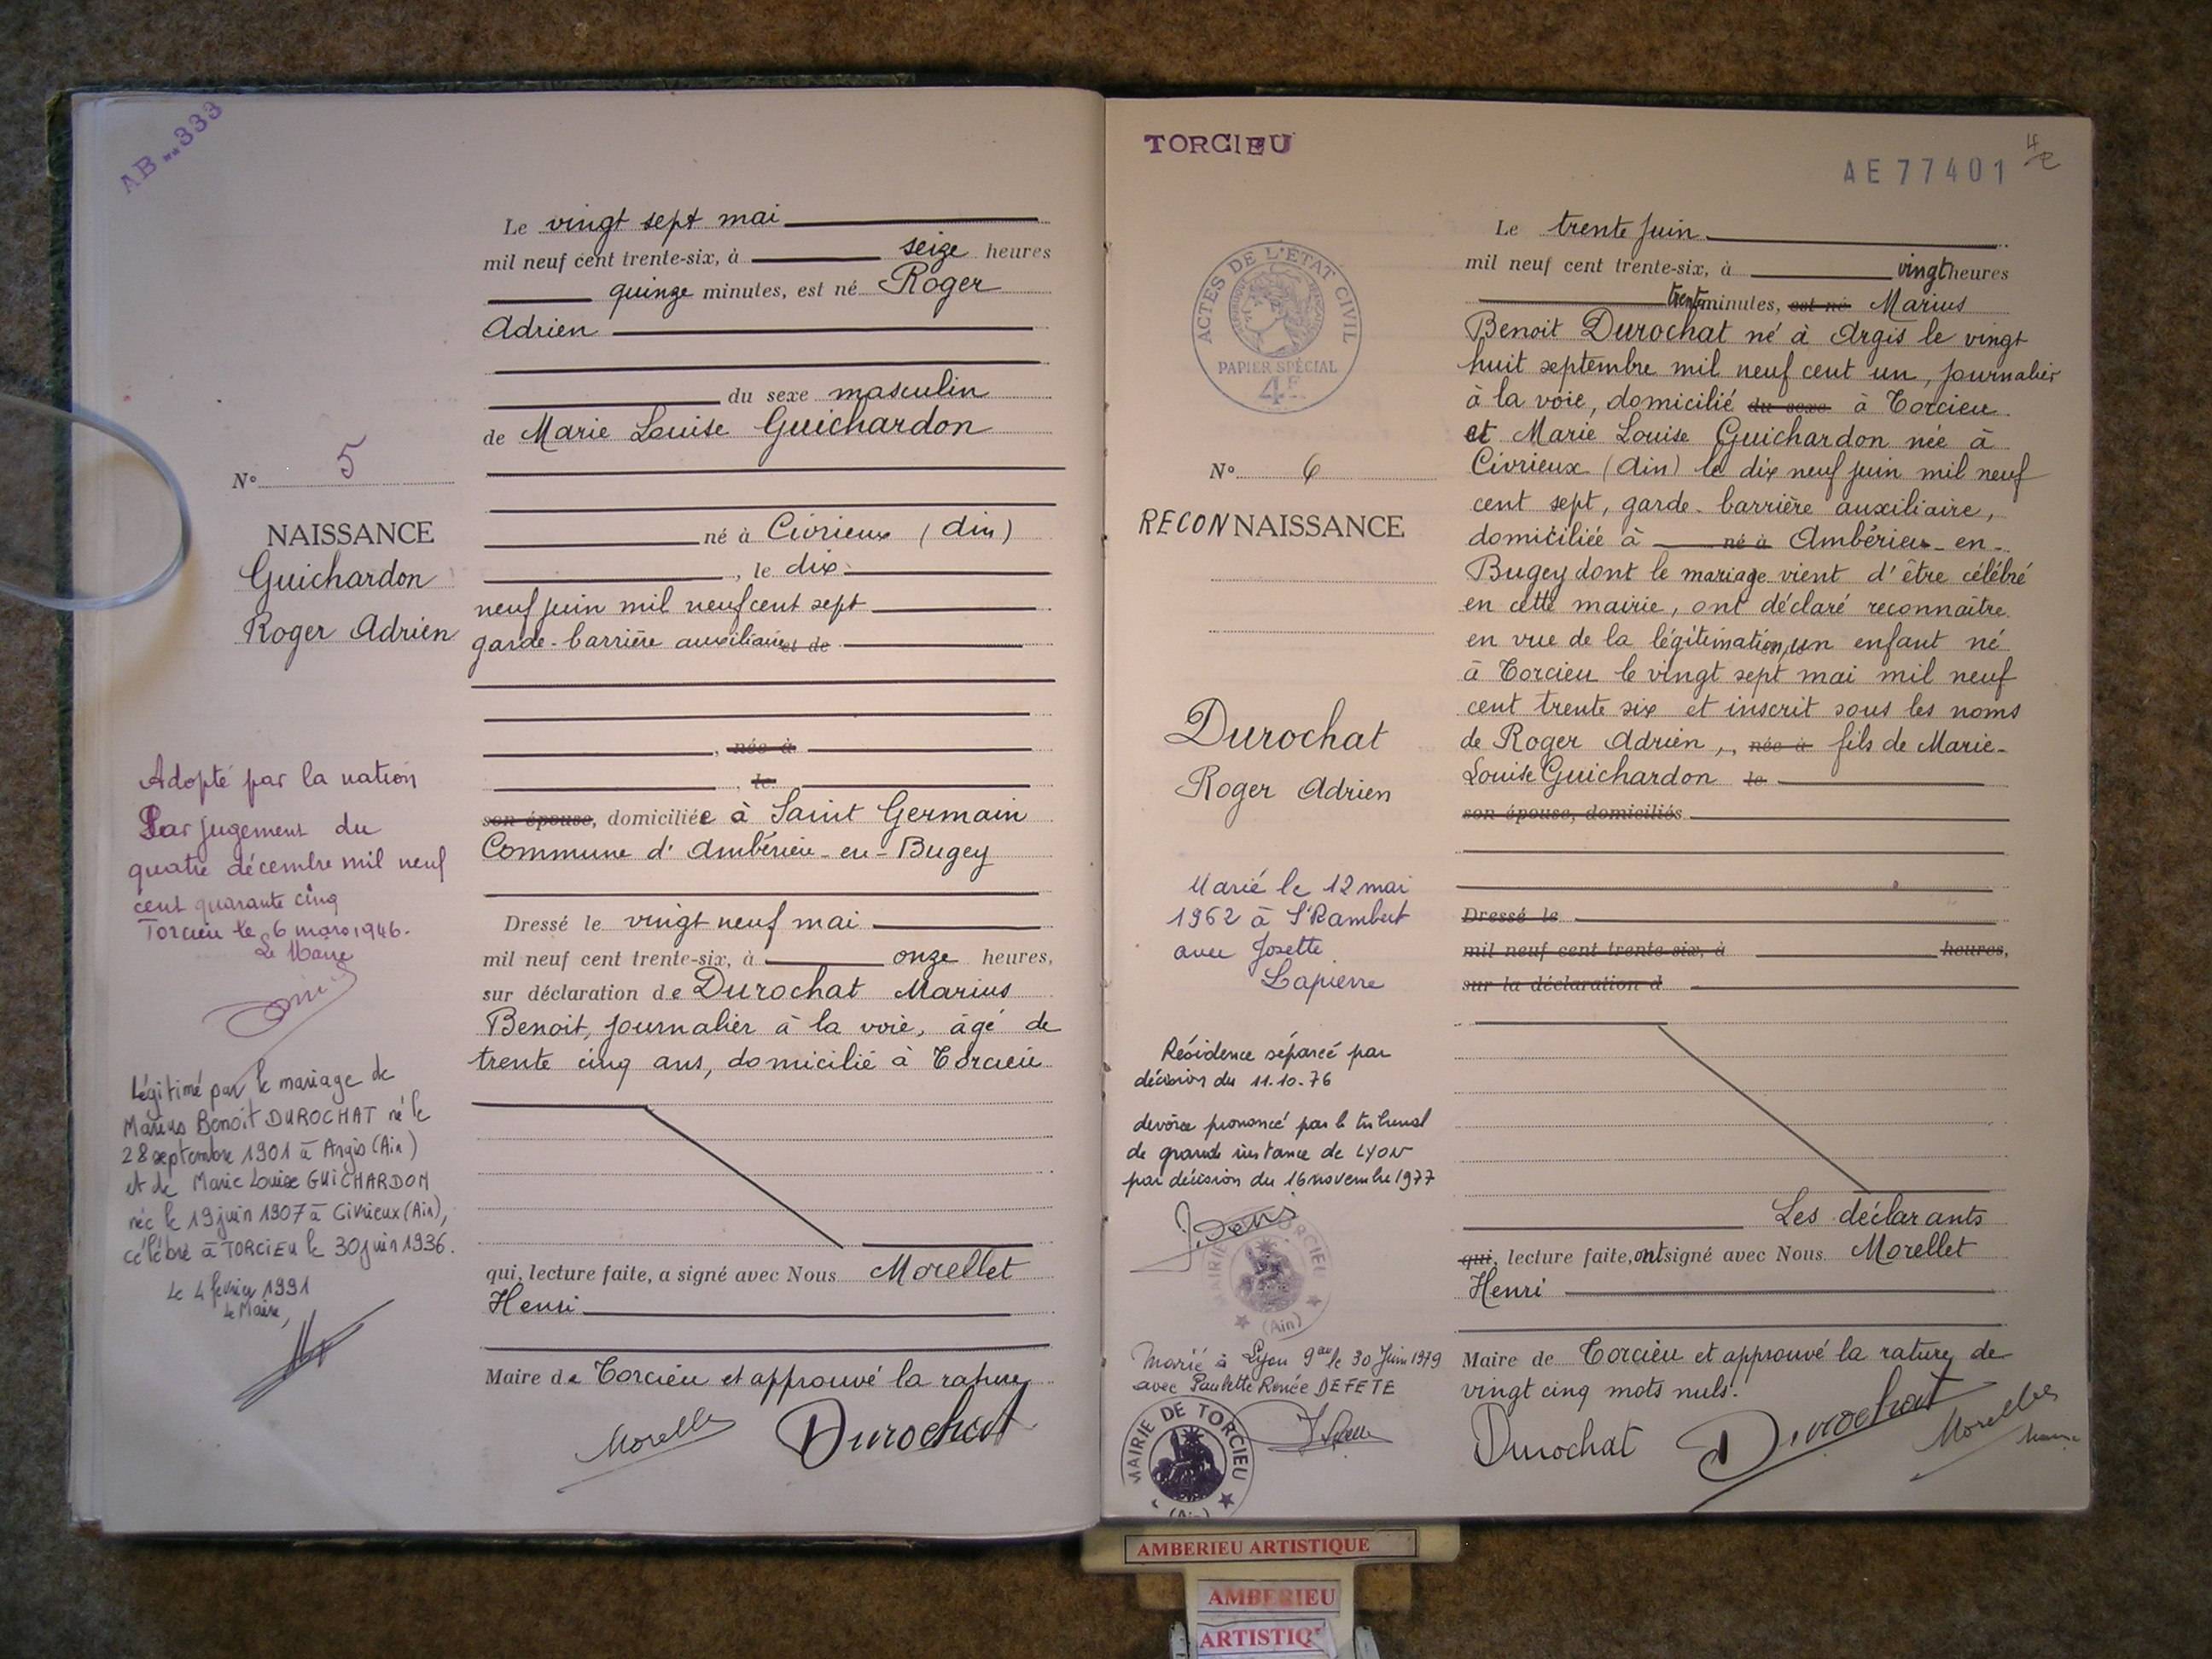 AB 333
Le vingt sept mai
mil neuf cent trente-six, à seize heures
quinze minutes, est né Roger
Adrien
du sexe masculin
de Marie Louise Guichardon
né à Civrieux (Ain)
, le dix
neuf juin mil neuf cent sept
garde-barrière auxiliaire et de
, née à
, le
son épouse, domiciliée à Saint Germain
Commune d'Ambérieu-en-Bugey
Dressé le vingt neuf mai
mil neuf cent trente-six, à onze heures,
sur déclaration de Durochat Marius
Benoit, journalier à la voie, âgé de
trente cinq ans, domicilié à Torcieu
qui, lecture faite, a signé avec Nous Morellet
Henri
Maire de Torcieu et approuvé la rature
Morellet Durochat
N° 5
NAISSANCE
Guichardon
Roger Adrien
Adopté par la nation
Par jugement du
quatre décembre mil neuf
cent quarante cinq
Torcieu le 6 mars 1946.
Le Maire
Légitimé par le mariage de
Marius Benoît DUROCHAT né le
28 septembre 1901 à Argis (Ain)
et de Marie Louise GUICHARDON
née le 19 juin 1907 à Civrieux (Ain),
célébré à TORCIEU le 30 juin 1936.
Le 4 février 1991
Le Maire,
TORCIEU
AE 77401
ACTES DE L'ÉTAT CIVIL
PAPIER SPÉCIAL
4F
Le trente juin
mil neuf cent trente-six, à vingt heures
trente minutes, est né Marius
Benoit Durochat né à Argis le vingt
huit septembre mil neuf cent un, journalier
à la voie, domicilié du sexe à Torcieu
et Marie Louise Guichardon née à
Civrieux (Ain) le dix neuf juin mil neuf
cent sept, garde-barrière auxiliaire,
domiciliée à né à Ambérieu-en-
Bugey dont le mariage vient d'être célébré
en cette mairie, ont déclaré reconnaître
en vue de la légitimation, un enfant né
à Torcieu le vingt sept mai mil neuf
cent trente six et inscrit sous les noms
de Roger Adrien, née à fils de Marie-
Louise Guichardon le
son épouse, domiciliés
Dressé le
mil neuf cent trente-six, à heures,
sur la déclaration d
Les déclarants
qui, lecture faite, ont signé avec Nous Morellet
Henri
Maire de Torcieu et approuvé la rature de
vingt cinq mots nuls.
Durochat Durochat Morellet
N° 6
RECONNAISSANCE
Durochat
Roger Adrien
Marié le 12 mai
1962 à St Rambert
avec Josette
Lapierre
Résidence séparée par
décision du 11.10.76
divorce prononcé par le tribunal
de grande instance de LYON
par décision du 16 novembre 1977
MAIRIE TORCIEU
(Ain)
Marié à Lyon 9e le 30 Juin 1979
avec Paulette Renée DEFETE
MAIRIE DE TORCIEU
(Ain)
AMBERIEU ARTISTIQUE
AMBERIEU
ARTISTIQ